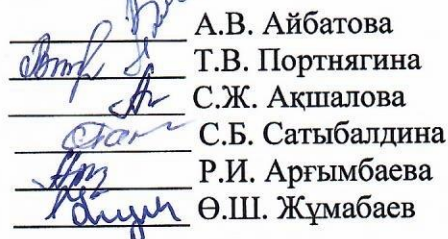 А.В. Айбатова
Т.В. Портнягина
С.Ж. Ақшалова
С.Б. Сатыбалдина
Р.И. Арғымбаева
Ө.Ш. Жұмабаев